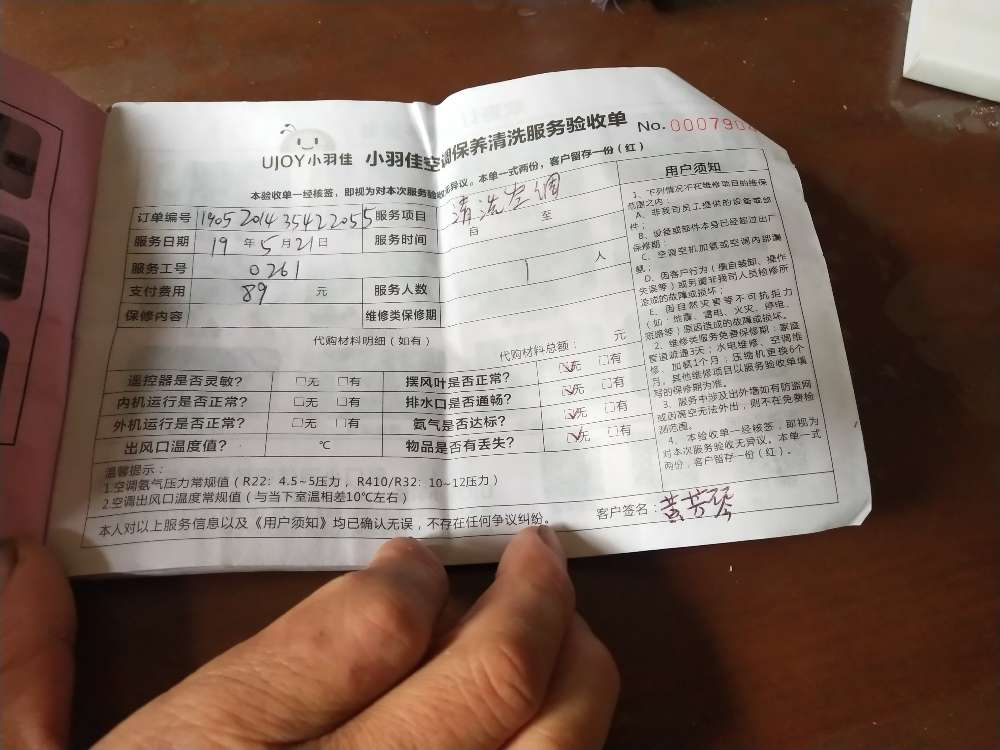 UJOY小羽佳 小羽佳空调保养清洗服务验收单 No.000790
本验收单一经核签，即视为对本次服务验收无异议。本单一式两份，客户留存一份（红）
订单编号 1905 2014 3542 2055 服务项目 清洗空调
服务日期 19 年 5 月 21 日 服务时间 自 至
服务工号 0261
支付费用 89 元 服务人数 1 人
保修内容 维修类保修期
代购材料明细（如有） 代购材料总额： 元
遥控器是否灵敏？ 口无 口有 摆风叶是否正常？ 口无 口有
内机运行是否正常？ 口无 口有 排水口是否通畅？ 口无 口有
外机运行是否正常？ 口无 口有 氨气是否达标？ 口无 口有
出风口温度值？ ℃ 物品是否有丢失？ 口无 口有
温馨提示：
1.空调氨气压力常规值（R22：4.5~5压力，R410/R32：10~12压力）
2.空调出风口温度常规值（与当下室温相差10℃左右）
本人对以上服务信息以及《用户须知》均已确认无误，不存在任何争议纠纷。 客户签名：黄芳琴
用户须知
1、下列情况不在维修项目的维保
范围之内：
A、非我司员工提供的设备或部
件；
B、设备或部件本身已经超过出厂
保修期；
C、空调空机加氨或空调内部漏
氨；
D、因客户行为（擅自装卸、操作
失误等）或另调非我司人员检修所
造成的故障或损坏；
E、因自然灾害等不可抗拒力
（如：地震、雷电、火灾、停电、
短路等）原因造成的故障或损坏。
2、维修类服务免费保修期：家庭
管道疏通3天；水电维修、空调维
修、加氨1个月；压缩机更换6个
月，其他维修项目以服务验收单填
写的保修期为准。
3、服务中涉及出外墙如有防盗网
或因高空无法外出，则不在免费检
测范围。
4、本验收单一经核签，即视为
对本次服务验收无异议。本单一式
两份，客户留存一份（红）。